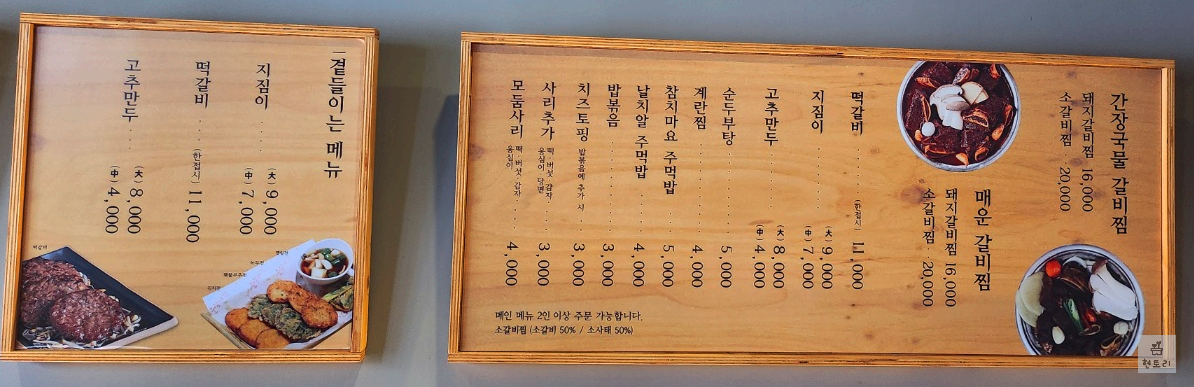 곁들이는 메뉴
지짐이 (大) 9,000
(中) 7,000
떡갈비 (한접시) 11,000
고추만두 (大) 8,000
(中) 4,000
간장국물 갈비찜
돼지갈비찜 16,000
소갈비찜 20,000
매운 갈비찜
돼지갈비찜 16,000
소갈비찜 20,000
떡갈비 (한접시) 11,000
지짐이 (大) 9,000
(中) 7,000
고추만두 (大) 8,000
(中) 4,000
순두부탕 5,000
계란찜 4,000
참치마요 주먹밥 5,000
날치알 주먹밥 4,000
밥볶음 3,000
치즈토핑 밥볶음에 추가 시 3,000
사리추가 떡, 버섯, 감자, 옹심이, 당면 3,000
모둠사리 떡, 버섯, 감자, 옹심이 4,000
메인 메뉴 2인 이상 주문 가능합니다.
소갈비찜 (소갈비 50% / 소사태 50%)
현토리